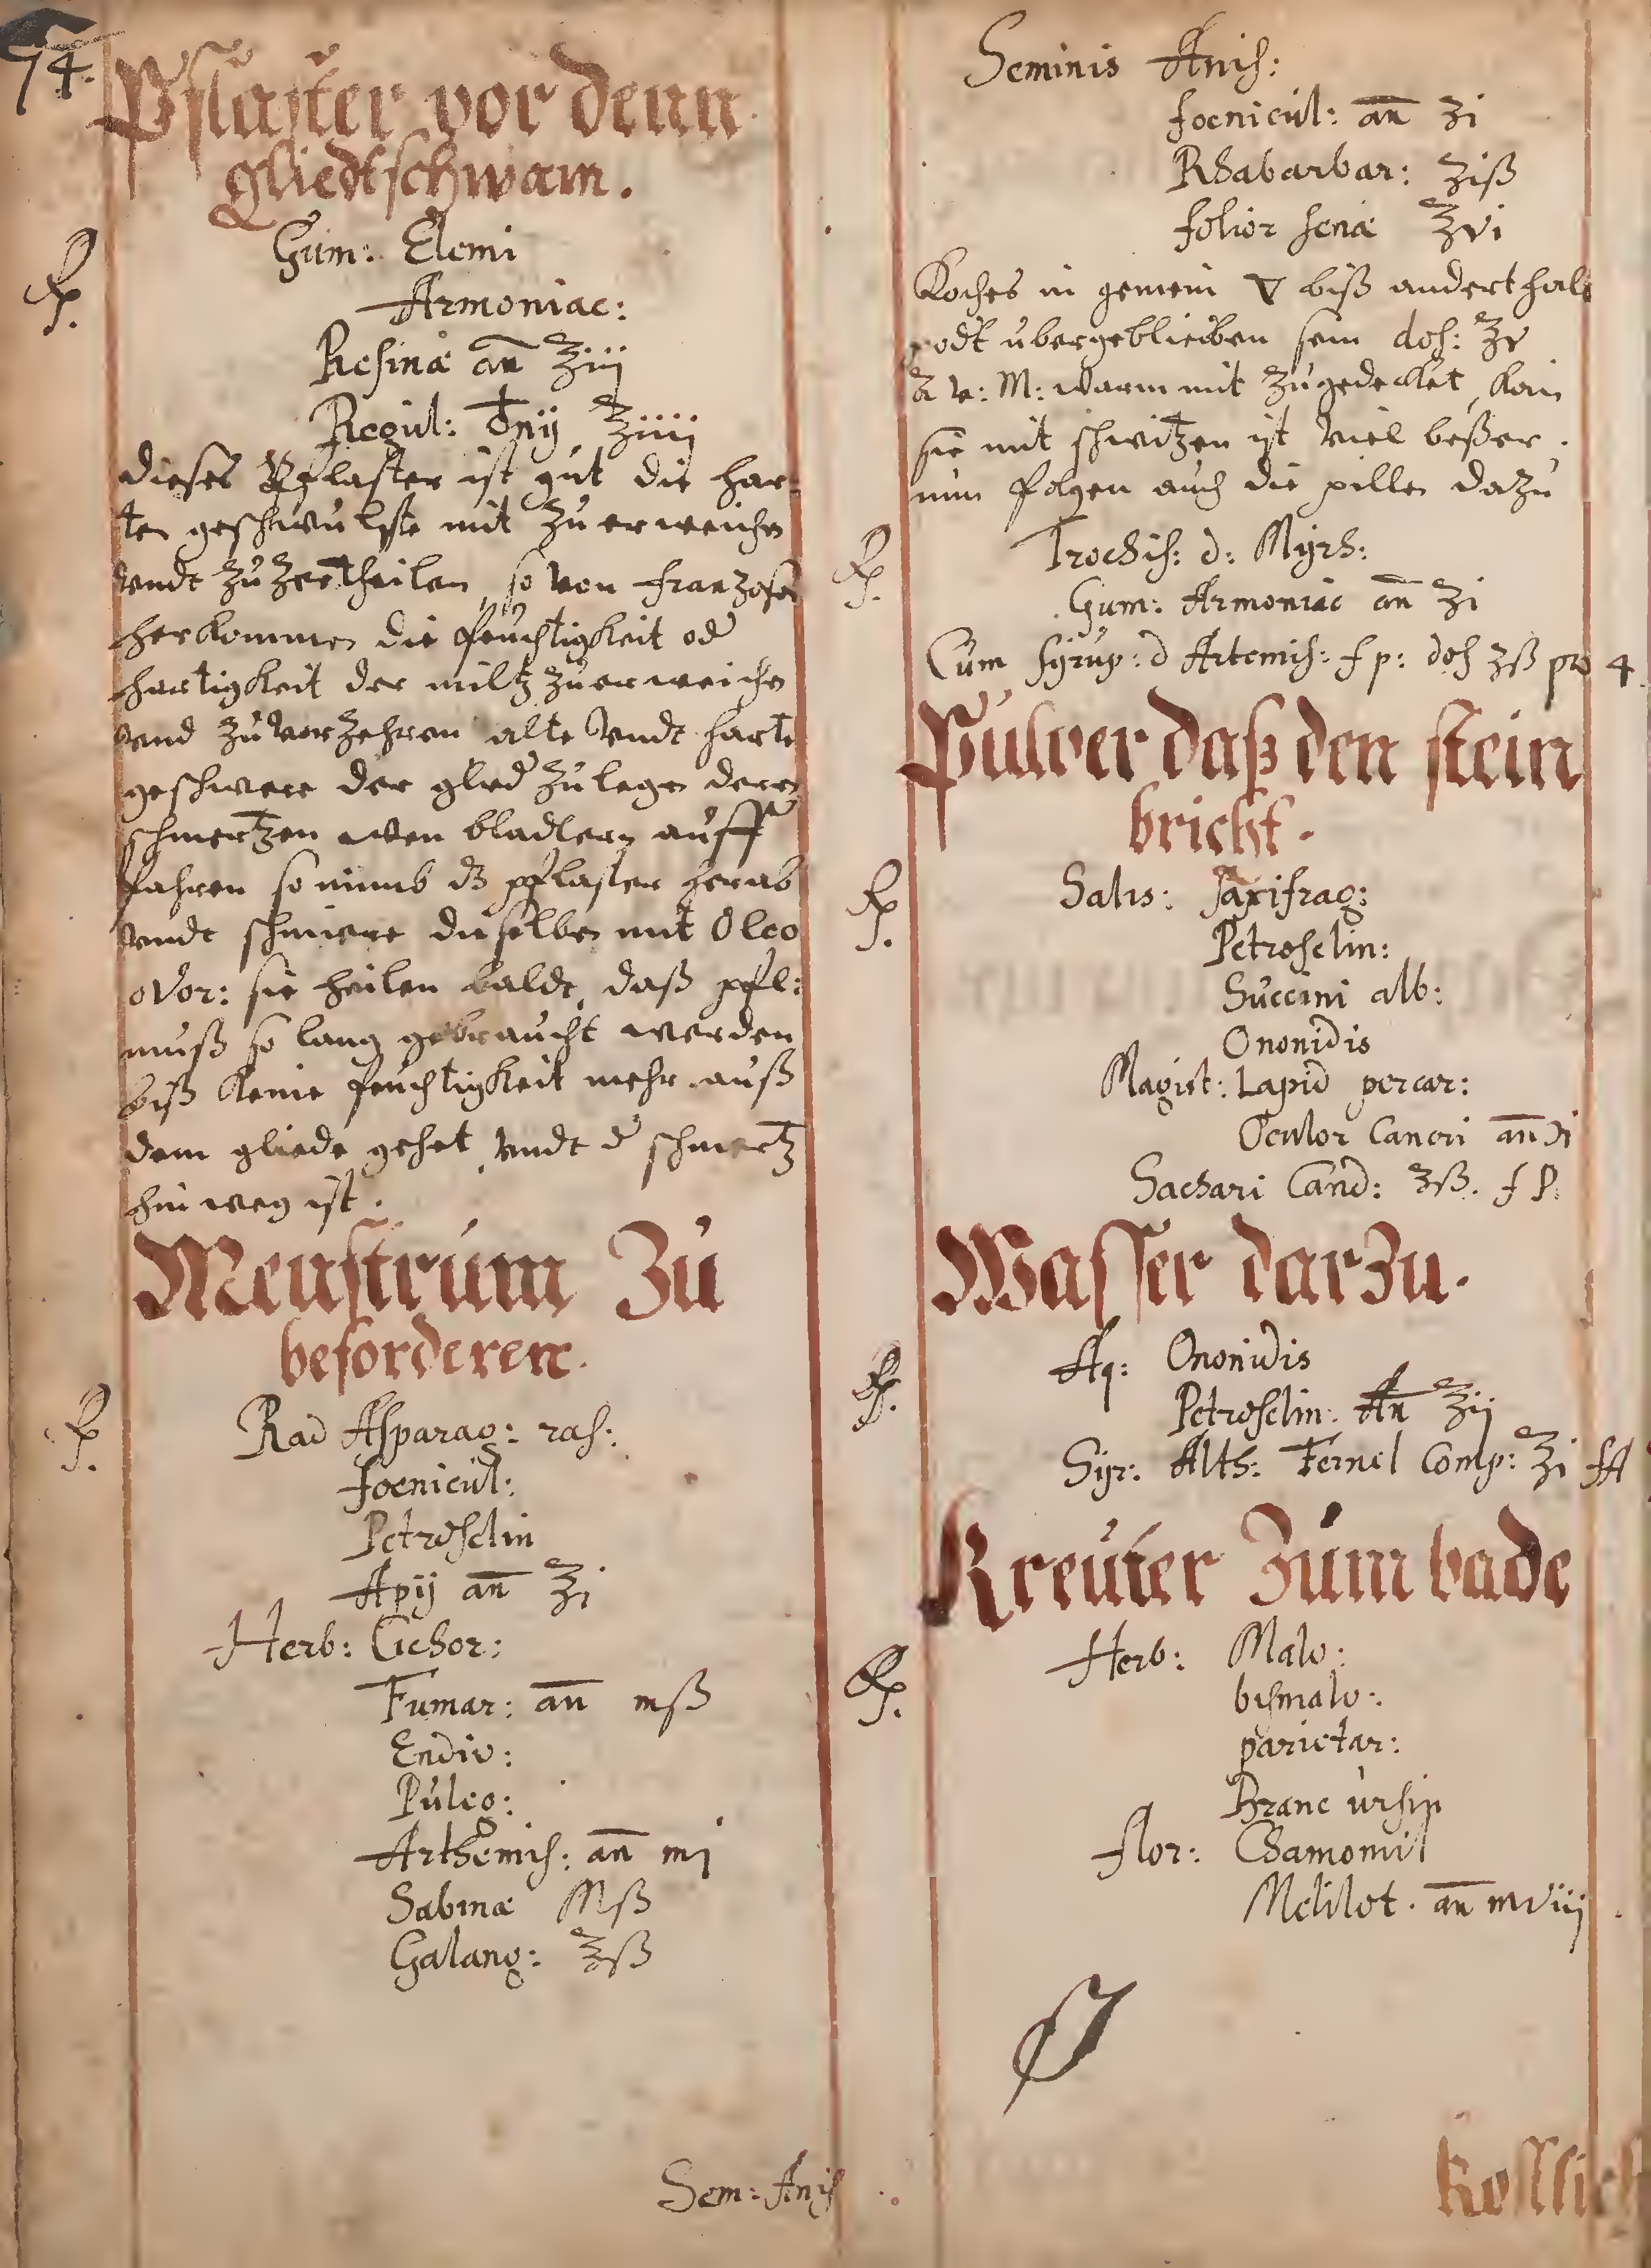 74.
Pflaster vor denn
gliedtschwam.
Rp. Gum: Elemi
Armoniac:
Resinæ an ʒiij
Regul: ♁nij ʒiiij
dieses Pflaster ist gut die har-
ten geschwulste mit zu erweichen
vndt zu zertheilen, so von frantzosen
herkommen die feuchtigkeit od
hartigkeit der miltz zu erweichen
vnd zu verzehren alte vndt harte
geschwere der glied zu legen deren
schmertzen wen bladtern auff
fahren so nimb dz pflaster herab
vndt schmiere dieselben mit Oleo
ovor: sie heilen baldt, daß pfl:
muß so lang gebraucht werden
biß keine feuchtigkeit mehr auß
dem gliede gehet vndt d schmertz
hinweg ist.
Menstrum Zu
beforderen.
Rp. Rad Asparag: ras:
foenicul:
Petroselin
Apij an ℥i
Herb: Cichor:
Fumar: an mß
Endiv:
Puleg:
Arthemis: an mj
Sabinæ Mß
Galang: ℥ß
Sem: Anis
Seminis Anis:
foenicul: an ʒi
Rhabarbar: ʒiß
folior senæ ℥vi
Koches in gemein ▽ biß anderthalb
podt ubergeblieben sein dos: ℥v
warm mit zugedecket, kan
sie mit schwitzen ist viel beßer.
nun folgen auch die pillen dazu
Rp. Trochis: d: Myrh:
Gum: Armoniac an ʒi
Cum syrup: d Artemis: f p: dos ʒß pro 4
Pulver daß den stein
bricht.
Rp. Salis: Saxifrag:
Petroselin:
Succini alb:
Ononidis
Magist: Lapid percar:
Oculor Cancri an ℈i
Sachari Cand: ʒß. f P.
Wasser darzu.
Rp. Aq: Ononidis
Petroselin: An ℥ij
Syr: Alth: Fernel Comp: ℥i
Kreuter Zum bade
Rp. Herb: Malv:
bismalv:
parietar:
Branc ursin
flor: Chamomil
Melilot. an mviij